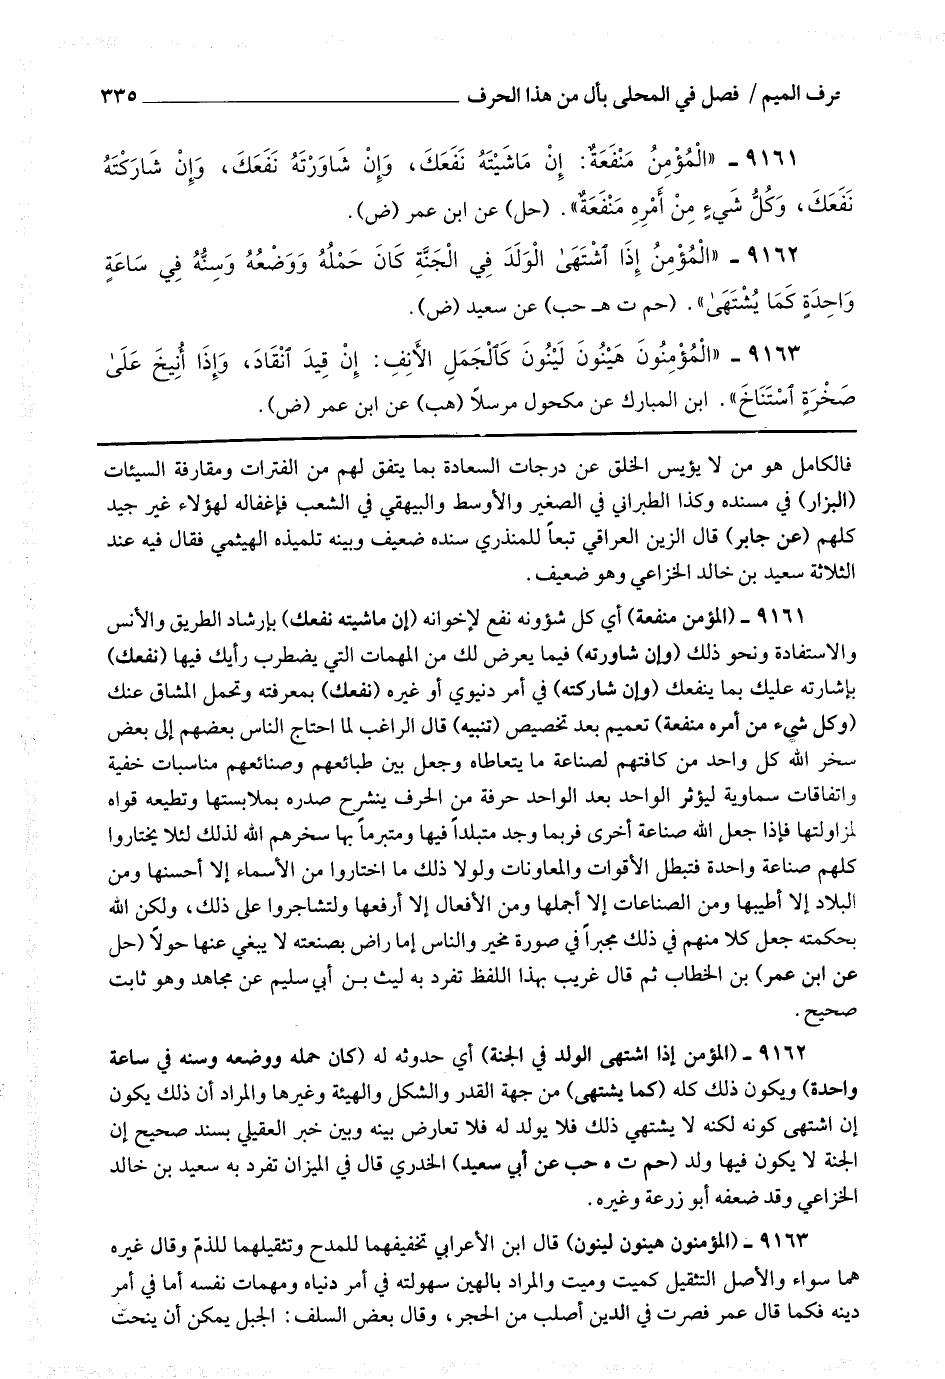 حرف الميم / فصل في المحلى بأل من هذا الحرف ٣٣٥
٩١٦١ - «الْمُؤْمِنُ مَنْفَعَةٌ: إِنْ مَاشَيْتَهُ نَفَعَكَ، وَإِنْ شَاوَرْتَهُ نَفَعَكَ، وَإِنْ شَارَكْتَهُ
نَفَعَكَ، وَكُلُّ شَيْءٍ مِنْ أَمْرِهِ مَنْفَعَةٌ». (حل) عن ابن عمر (ض).
٩١٦٢ - «الْمُؤْمِنُ إِذَا ٱشْتَهَىٰ الْوَلَدَ فِي الْجَنَّةِ كَانَ حَمْلُهُ وَوَضْعُهُ وَسِنُّهُ فِي سَاعَةٍ
وَاحِدَةٍ كَمَا يُشْتَهَىٰ». (حم ت هـ حب) عن سعيد (ض).
٩١٦٣ - «الْمُؤْمِنُونَ هَيْنُونَ لَيْنُونَ كَالْجَمَلِ الأَنِفِ: إِنْ قِيدَ ٱنْقَادَ، وَإِذَا أُنِيخَ عَلَىٰ
صَخْرَةٍ ٱسْتَنَاخَ». ابن المبارك عن مكحول مرسلاً (هب) عن ابن عمر (ض).
فالكامل هو من لا يؤيس الخلق عن درجات السعادة بما يتفق لهم من الفترات ومقارفة السيئات
(البزار) في مسنده وكذا الطبراني في الصغير والأوسط والبيهقي في الشعب فإغفاله لهؤلاء غير جيد
كلهم (عن جابر) قال الزين العراقي تبعاً للمنذري سنده ضعيف وبينه تلميذه الهيثمي فقال فيه عند
الثلاثة سعيد بن خالد الخزاعي وهو ضعيف.
٩١٦١ - (المؤمن منفعة) أي كل شؤونه نفع لإخوانه (إن ماشيته نفعك) بإرشاد الطريق والأنس
والاستفادة ونحو ذلك (وإن شاورته) فيما يعرض لك من المهمات التي يضطرب رأيك فيها (نفعك)
بإشارته عليك بما ينفعك (وإن شاركته) في أمر دنيوي أو غيره (نفعك) بمعرفته وتحمل المشاق عنك
(وكل شيء من أمره منفعة) تعميم بعد تخصيص (تنبيه) قال الراغب لما احتاج الناس بعضهم إلى بعض
سخر الله كل واحد من كافتهم لصناعة ما يتعاطاه وجعل بين طبائعهم وصنائعهم مناسبات خفية
واتفاقات سماوية ليؤثر الواحد بعد الواحد حرفة من الحرف ينشرح صدره بملابستها وتطيعه قواه
لمزاولتها فإذا جعل الله صناعة أخرى فربما وجد متبلداً فيها ومتبرماً بها سخرهم الله لذلك لئلا يختاروا
كلهم صناعة واحدة فتبطل الأقوات والمعاونات ولولا ذلك ما اختاروا من الأسماء إلا أحسنها ومن
البلاد إلا أطيبها ومن الصناعات إلا أجملها ومن الأفعال إلا أرفعها ولتشاجروا على ذلك، ولكن الله
بحكمته جعل كلا منهم في ذلك مجبراً في صورة مخير والناس إما راض بصنعته لا يبغي عنها حولاً (حل
عن ابن عمر) بن الخطاب ثم قال غريب بهذا اللفظ تفرد به ليث بن أبي سليم عن مجاهد وهو ثابت
صحيح.
٩١٦٢ - (المؤمن إذا اشتهى الولد في الجنة) أي حدوثه له (كان حمله ووضعه وسنه في ساعة
واحدة) ويكون ذلك كله (كما يشتهى) من جهة القدر والشكل والهيئة وغيرها والمراد أن ذلك يكون
إن اشتهى كونه لكنه لا يشتهي ذلك فلا يولد له فلا تعارض بينه وبين خبر العقيلي بسند صحيح إن
الجنة لا يكون فيها ولد (حم ت ه حب عن أبي سعيد) الخدري قال في الميزان تفرد به سعيد بن خالد
الخزاعي وقد ضعفه أبو زرعة وغيره.
٩١٦٣ - (المؤمنون هينون لينون) قال ابن الأعرابي تخفيفهما للمدح وتثقيلهما للذمّ وقال غيره
هما سواء والأصل التثقيل كميت وميت والمراد بالهين سهولته في أمر دنياه ومهمات نفسه أما في أمر
دينه فكما قال عمر فصرت في الدين أصلب من الحجر، وقال بعض السلف: الجبل يمكن أن ينحت